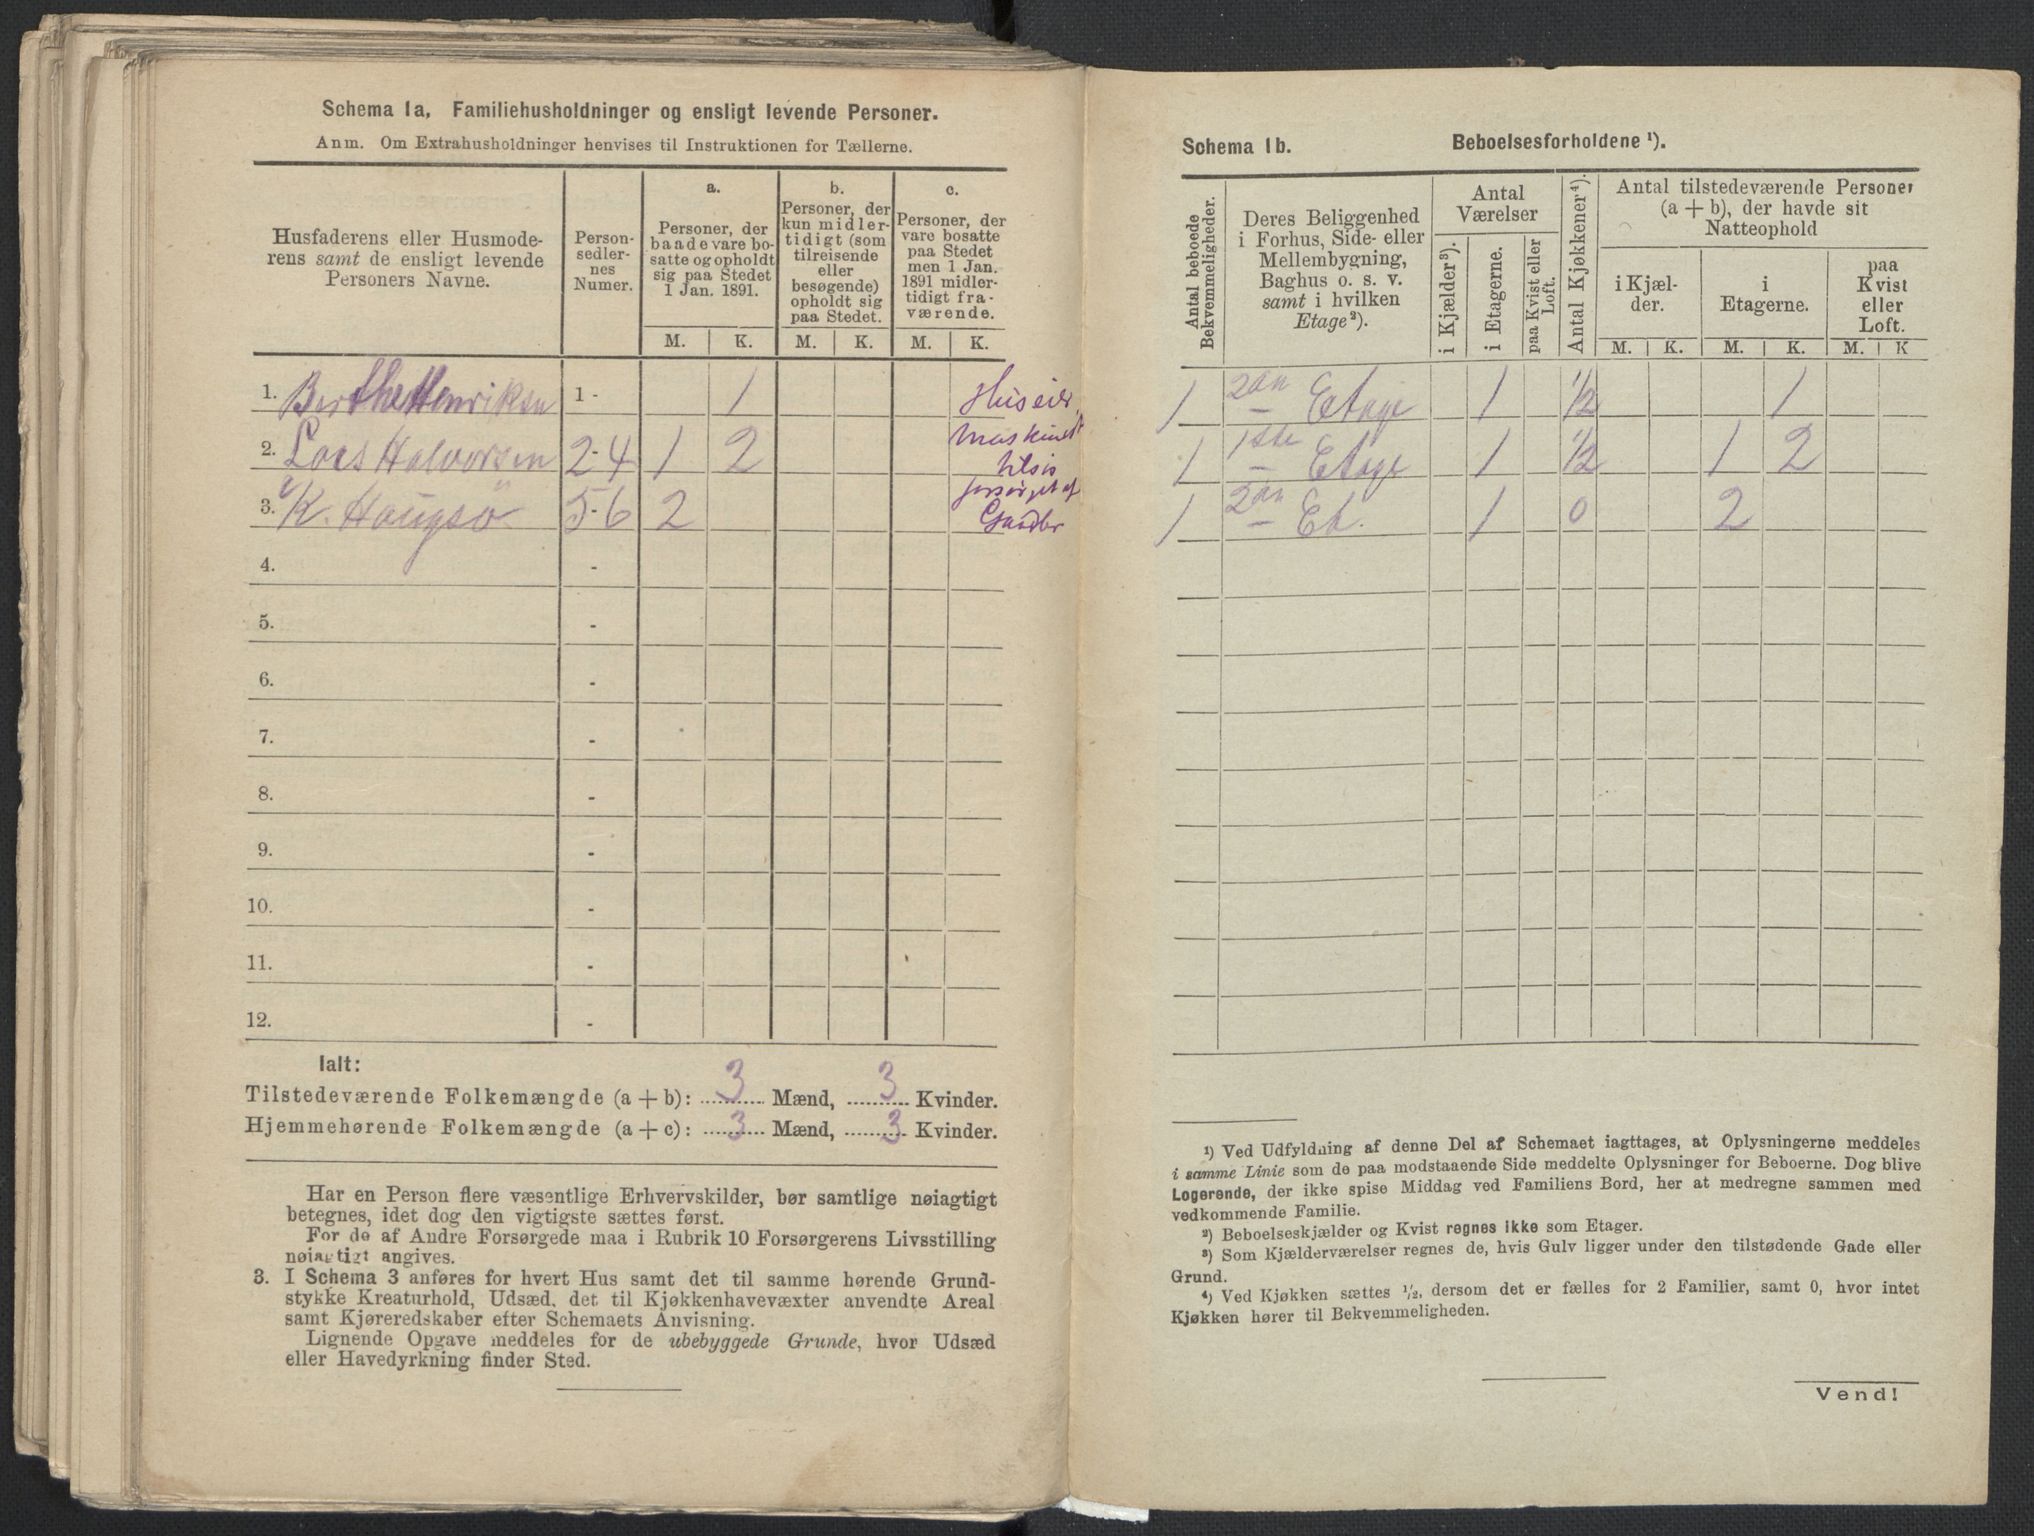 Schema 1a, Familiehusholdninger og ensligt levende Personer.
Anm. Om Extrahusholdninger henvises til Instruktionen for Tællerne.
Husfaderens eller Husmode-
rens samt de ensligt levende
Personers Navne.
Person-
sedler-
nes
Numer.
a.
Personer, der
baade vare bo-
satte og opholdt
sig paa Stedet
1 Jan. 1891.
b.
Personer, der
kun midler-
tidigt (som
tilreisende
eller
besøgende)
opholdt sig
paa Stedet.
c.
Personer, der
vare bosatte
paa Stedet
men 1 Jan.
1891 midler-
tidigt fra-
værende.
M. K. M. K. M. K.
1. Berthe Henriksen 1 - 1 Huseier
2. Lars Halvorsen 2-4 1 2
3. K. Haugsø 5-6 2
4. -
5. -
6. -
7. -
8. -
9. -
10. -
11. -
12. -
Ialt:
Tilstedeværende Folkemængde (a + b): 3 Mænd, 3 Kvinder.
Hjemmehørende Folkemængde (a + c): 3 Mænd, 3 Kvinder.
Har en Person flere væsentlige Erhvervskilder, bør samtlige nøiagtigt
betegnes, idet dog den vigtigste sættes først.
For de af Andre Forsørgede maa i Rubrik 10 Forsørgerens Livsstilling
nøiagtigt angives.
3. I Schema 3 anføres for hvert Hus samt det til samme hørende Grund-
stykke Kreaturhold, Udsæd, det til Kjøkkenhavevæxter anvendte Areal
samt Kjøreredskaber efter Schemaets Anvisning.
Lignende Opgave meddeles for de ubebyggede Grunde, hvor Udsæd
eller Havedyrkning finder Sted.
Schema 1b. Beboelsesforholdene ¹).
Antal beboede
Bekvemmeligheder.
Deres Beliggenhed
i Forhus, Side- eller
Mellembygning,
Baghus o. s. v.
samt i hvilken
Etage ²).
Antal
Værelser
i Kjælder ³).
i Etagerne.
paa Kvist eller
Loft.
Antal Kjøkkener ⁴).
Antal tilstedeværende Personer
(a + b), der havde sit
Natteophold
i Kjæl-
der.
i
Etagerne.
paa
Kvist
eller
Loft.
M. K. M. K. M. K
1 2den Etage 1 1/2 1
1 1ste Etage 1 1/2 1 2
1 2den Et. 1 0 2
¹) Ved Udfyldning af denne Del af Schemaet iagttages, at Oplysningerne meddeles
i samme Linie som de paa modstaaende Side meddelte Oplysninger for Beboerne. Dog blive
Logerende, der ikke spise Middag ved Familiens Bord, her at medregne sammen med
vedkommende Familie.
²) Beboelseskjælder og Kvist regnes ikke som Etager.
³) Som Kjælderværelser regnes de, hvis Gulv ligger under den tilstødende Gade eller
Grund.
⁴) Ved Kjøkken sættes ½, dersom det er fælles for 2 Familier, samt 0, hvor intet
Kjøkken hører til Bekvemmeligheden.
Vend!